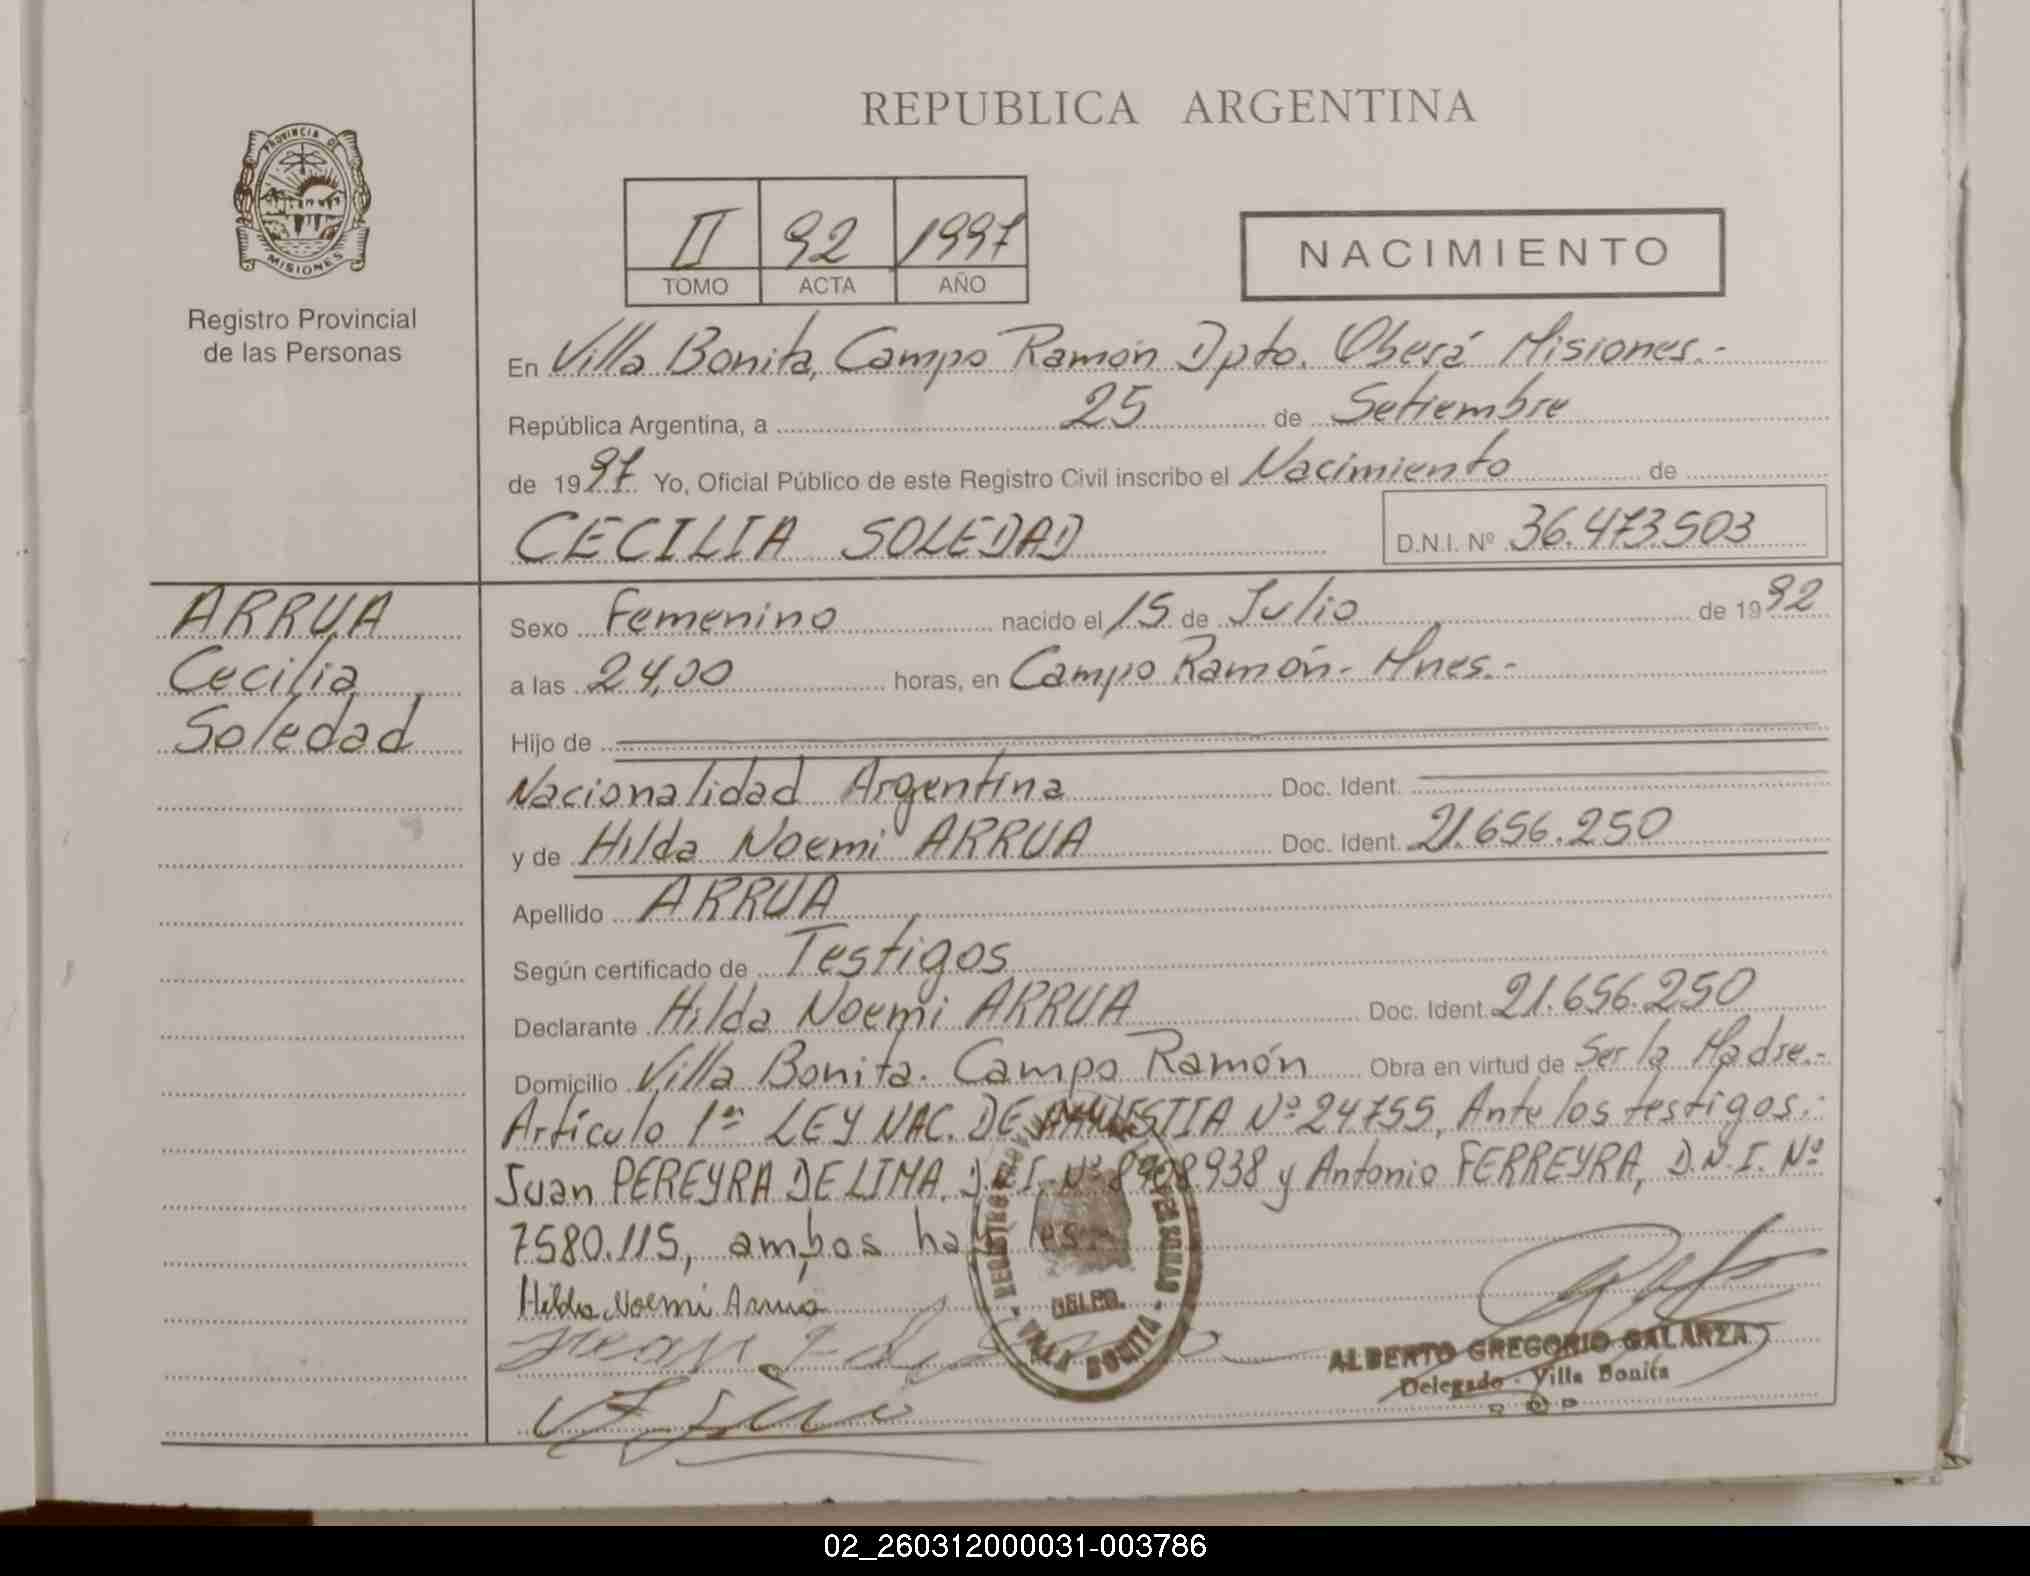 REPUBLICA ARGENTINA
PROVINCIA DE
MISIONES
Registro Provincial
de las Personas
II 92 1997
TOMO ACTA AÑO
NACIMIENTO
En Villa Bonita, Campo Ramón Dpto. Oberá Misiones.-
República Argentina, a 25 de Setiembre
de 1997 Yo, Oficial Público de este Registro Civil inscribo el Nacimiento de
CECILIA SOLEDAD D.N.I. Nº 36.473.503
ARRUA
Cecilia
Soledad
Sexo Femenino nacido el 15 de Julio de 1992
a las 24,00 horas, en Campo Ramón- Mnes.-
Hijo de
Nacionalidad Argentina Doc. Ident.
y de Hilda Noemi ARRUA Doc. Ident. 21.656.250
Apellido ARRUA
Según certificado de Testigos
Declarante Hilda Noemi ARRUA Doc. Ident. 21.656.250
Domicilio Villa Bonita. Campo Ramón Obra en virtud de Ser la Madre.-
Artículo 1º LEY NAC. DE AMNISTIA Nº 24755, Ante los testigos:
Juan PEREYRA DE LIMA, D.N.I. Nº 8.908.938 y Antonio FERREYRA, D.N.I. Nº
7580.115, ambos
Hilda Noemi Arrua
DELEG.
VILLA BONITA
ALBERTO GREGORIO GALARZA
Delegado - Villa Bonita
02_260312000031-003786